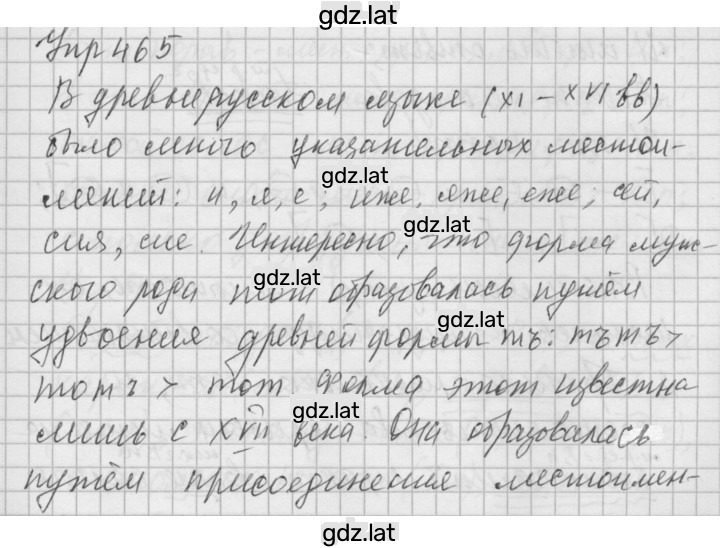 gdz.lat
Упр 465
В древнерусском языке (XI – XVI вв)
было много указательных местои-
gdz.lat
мений: и, я, е; иже, яже, еже; сей,
gdz.lat
сия, сие. Интересно, что форма муж-
gdz.lat
ского рода тот образовалась путём
gdz.lat
удвоения древней формы тъ: тътъ >
тотъ > тот. Форма этот известна
gdz.lat
лишь с XVII века. Она образовалась
путём присоединения местоимен-
gdz.lat